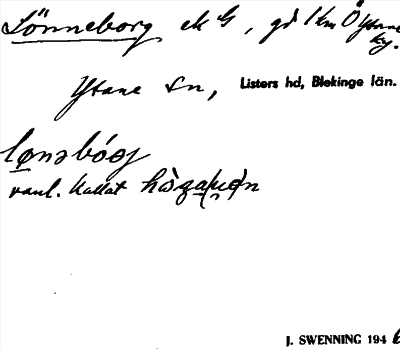 Lönneborg ek ¼, gd 1 km Ö Ystane ky.
Ystane sn, Listers hd, Blekinge län.
lønəbóəj
vanl. kallat
J. SWENNING 1946